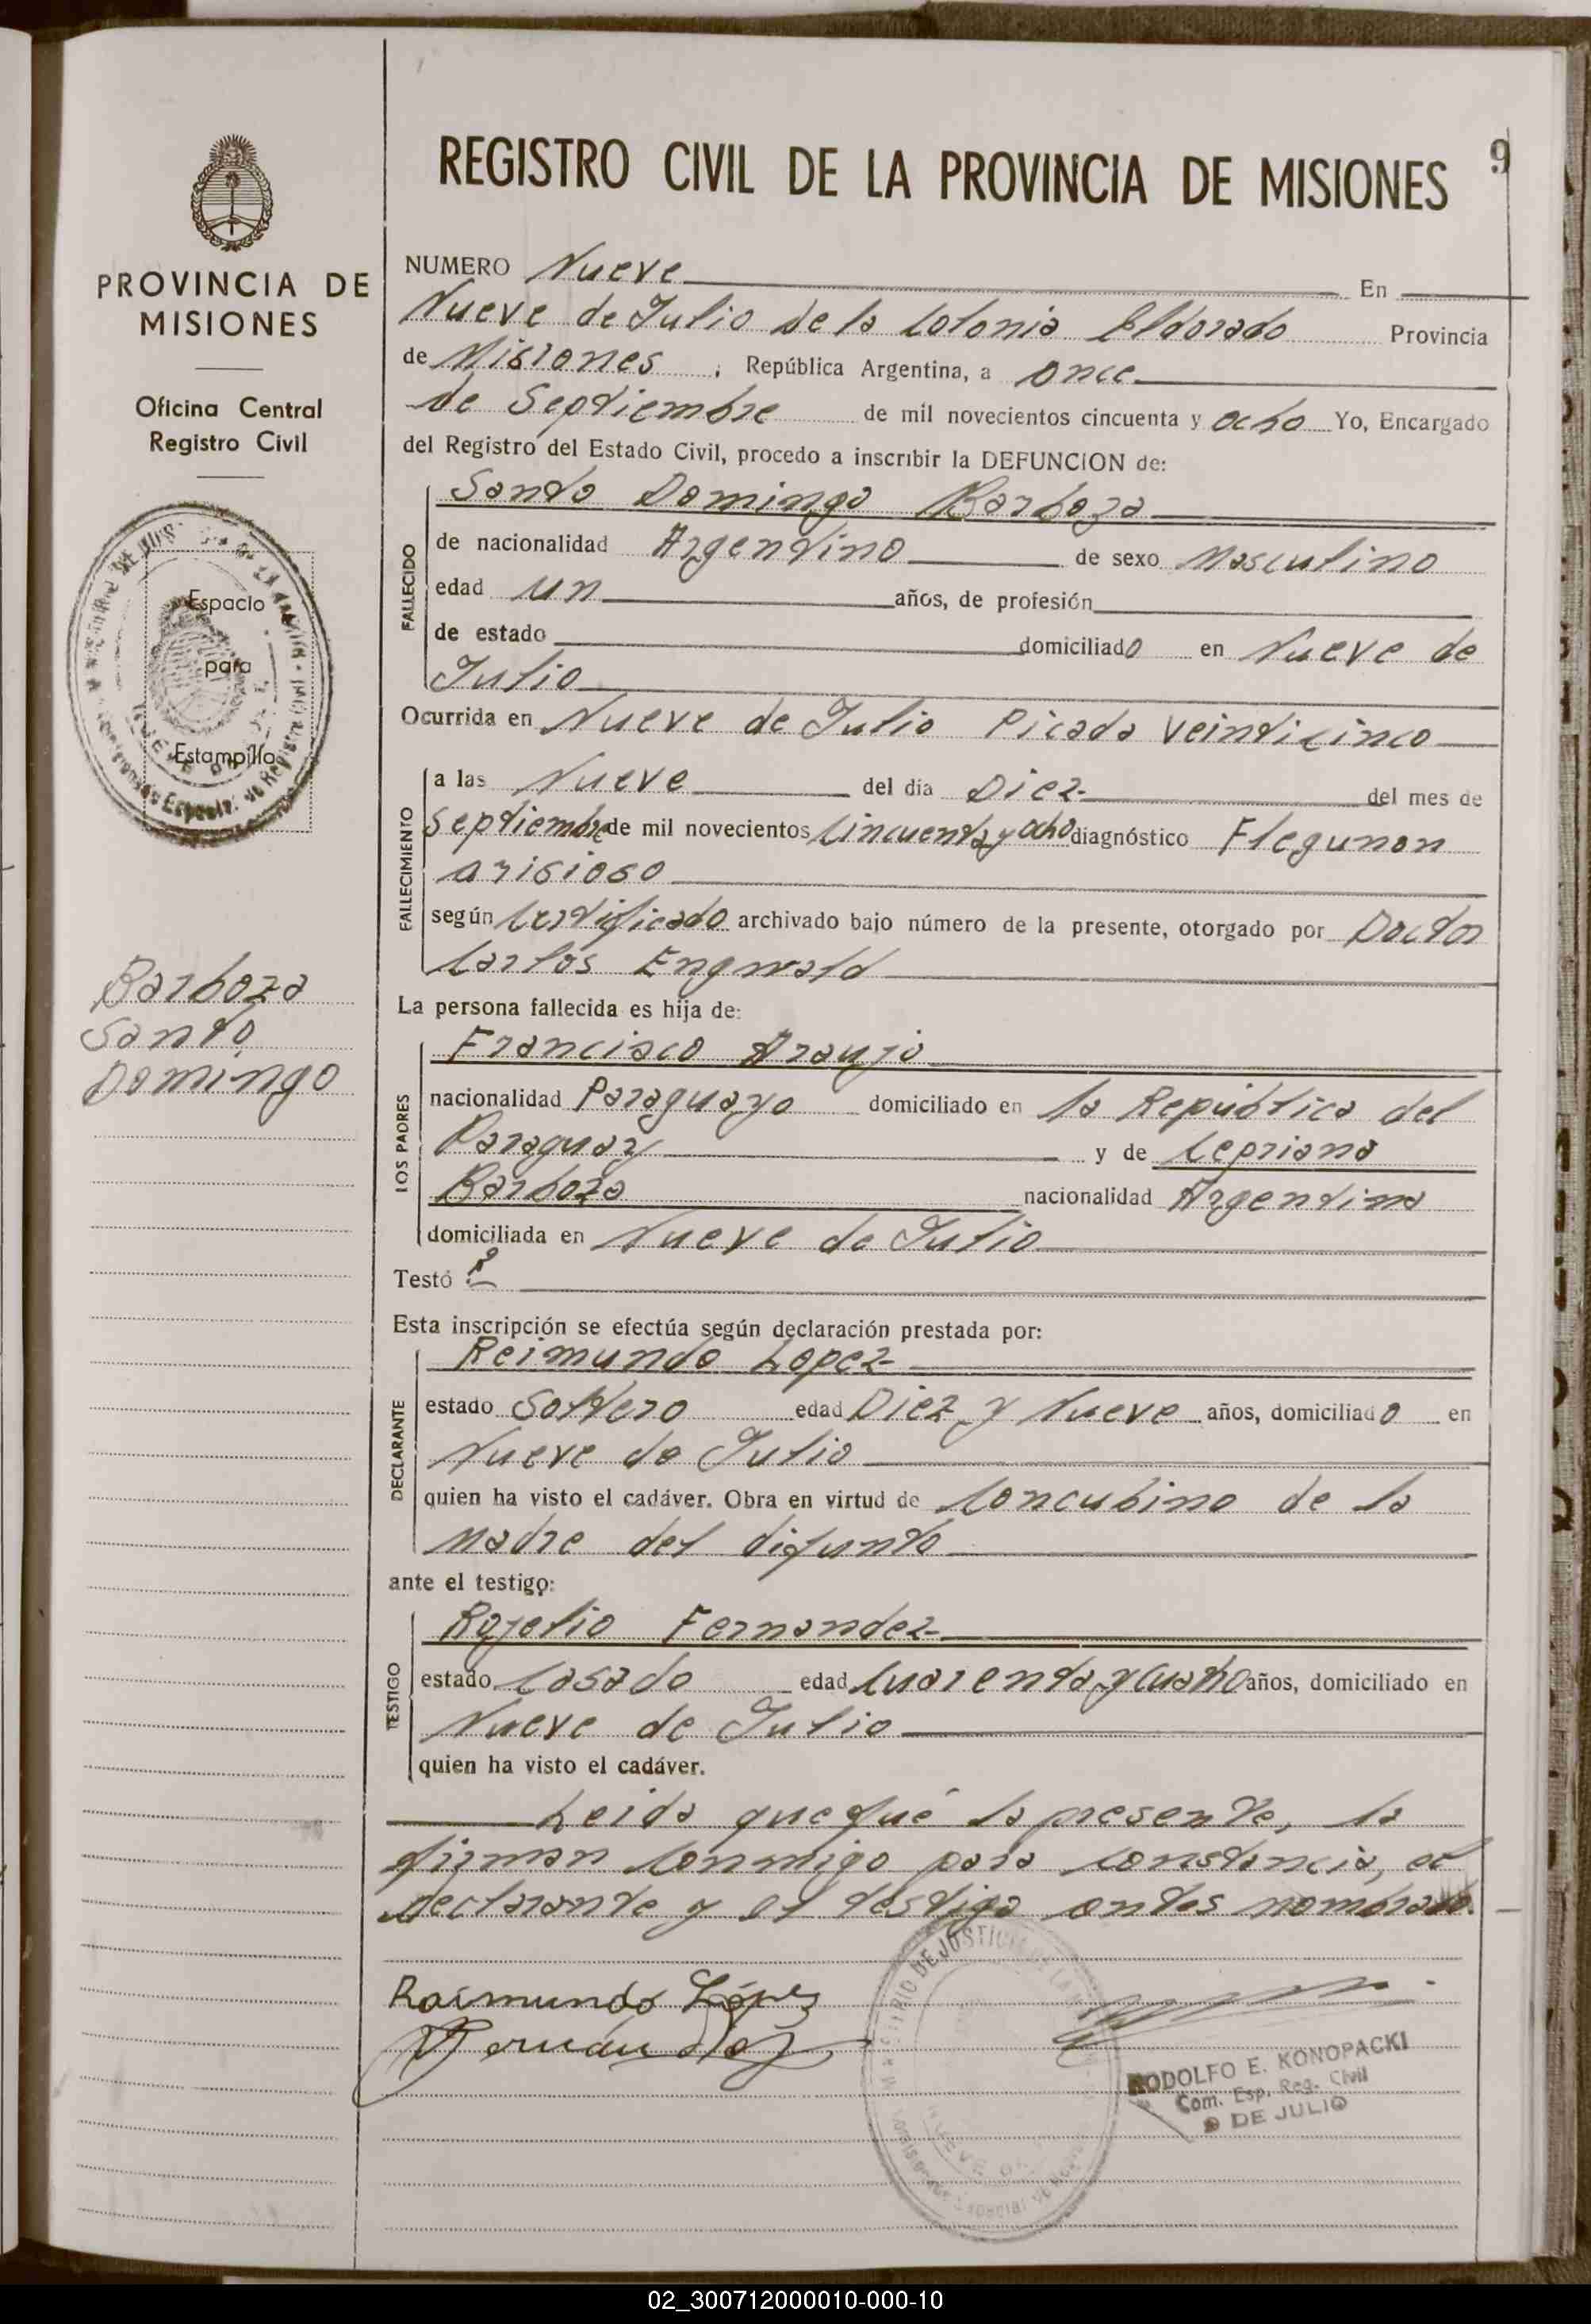 9
REGISTRO CIVIL DE LA PROVINCIA DE MISIONES
PROVINCIA DE
MISIONES
Oficina Central
Registro Civil
Espacio
para
Estampilla
Barboza
Santo
Domingo
NUMERO Nueve En
Nueve de Julio de la Colonia Eldorado Provincia
de Misiones, República Argentina, a once
de Septiembre de mil novecientos cincuenta y ocho Yo, Encargado
del Registro del Estado Civil, procedo a inscribir la DEFUNCION de:
Santo Domingo Barboza
FALLECIDO
de nacionalidad Argentino de sexo Masculino
edad un años, de profesión
de estado domiciliado en Nueve de
Julio
Ocurrida en Nueve de Julio Picada veinticinco
FALLECIMIENTO
a las Nueve del día Diez del mes de
Septiembre de mil novecientos Cincuenta y ocho diagnóstico Flegunon
arisioso
según Certificado archivado bajo número de la presente, otorgado por Doctor
Carlos Engwald
La persona fallecida es hija de:
LOS PADRES
Francisco Araujo
nacionalidad Paraguayo domiciliado en la República del
Paraguay y de Cepriana
Barboza nacionalidad Argentina
domiciliada en Nueve de Julio
Testó
Esta inscripción se efectúa según declaración prestada por:
DECLARANTE
Reimundo Lopez
estado Soltero edad Diez y Nueve años, domiciliado en
Nueve de Julio
quien ha visto el cadáver. Obra en virtud de Concubino de la
Madre del difunto
ante el testigo:
TESTIGO
Rojelio Fernandez
estado Casado edad Cuarenta y Cuatro años, domiciliado en
Nueve de Julio
quien ha visto el cadáver.
Leida que fué la presente, la
firman Conmigo para constancia, el
declarante y el testigo antes nombrado.
Raimundo López
Fernández
RODOLFO E. KONOPACKI
Com. Esp. Reg. Civil
9 DE JULIO
02_300712000010-000-10